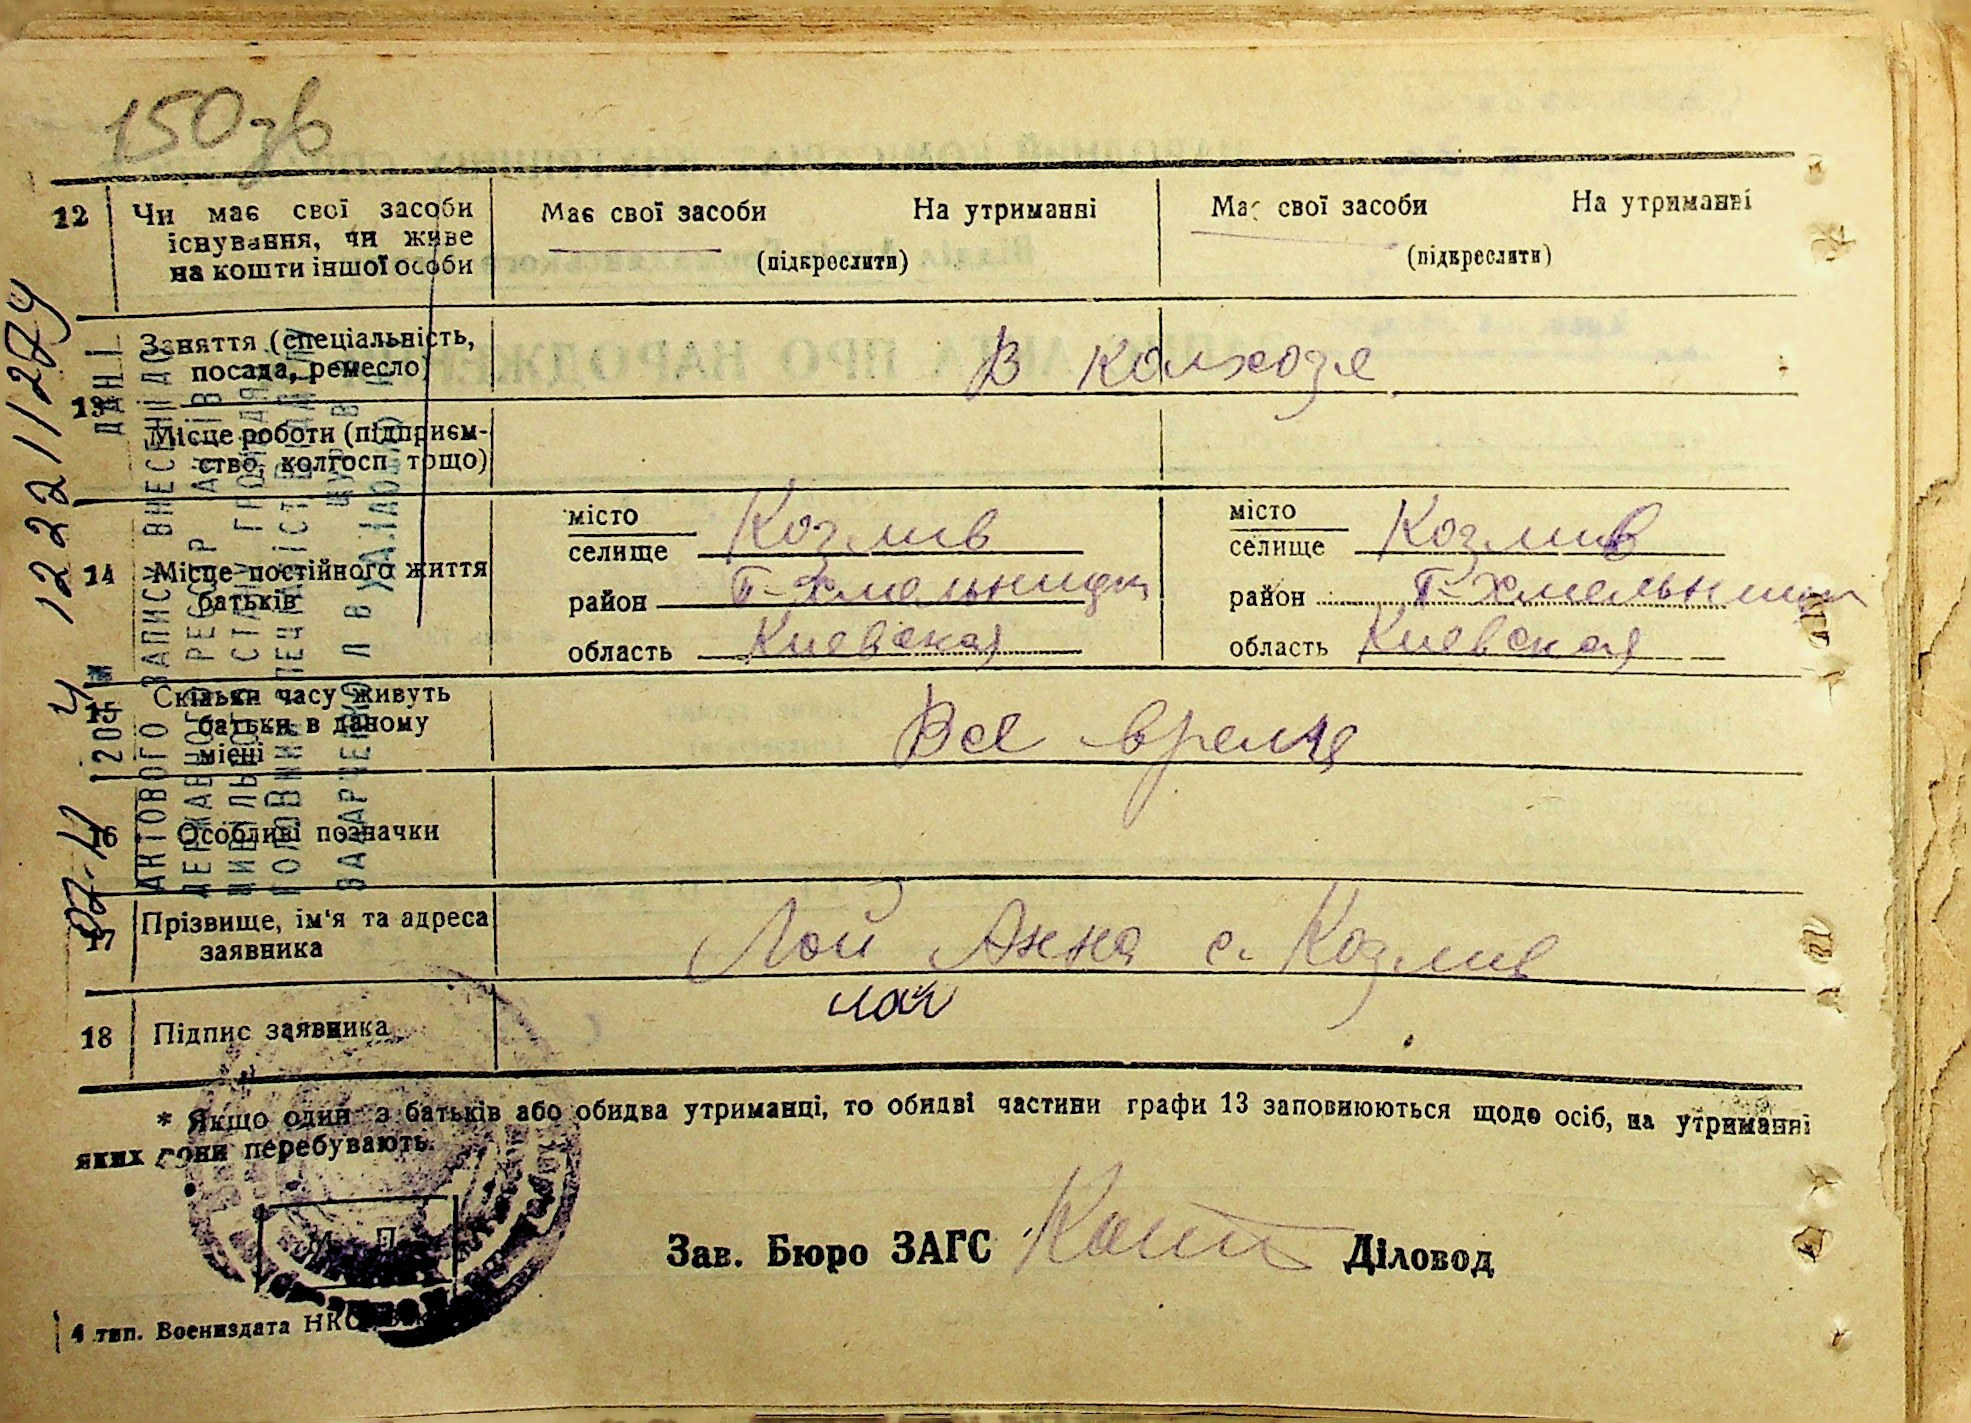 150зв
12 Чи має свої засоби існування, чи живе на кошти іншої особи
Має свої засоби На утриманні
(підкреслити)
Має свої засоби На утриманні
(підкреслити)
13
Заняття (спеціальність, посада, ремесло)
В колхозе
Місце роботи (підприєм-
ство, колгосп тощо)
14 Місце постійного життя
батьків
місто
селище Козлив
район П-Хмельницк
область Киевская
місто
селище Козлив
район П-Хмельницк
область Киевская
15 Скільки часу живуть
батьки в даному
місці
Все время
16 Особливі позначки
17 Прізвище, ім'я та адреса
заявника
Лой Анна с. Козлив
18 Підпис заявника
Лой
* Якщо один з батьків або обидва утриманці, то обидві частини графи 13 заповнюються щодо осіб, на утриманні
яких вони перебувають.
М. П.
Зав. Бюро ЗАГС
Діловод
4 тип. Воениздата НКО
ДАНІ
АКТОВОГО ЗАПИСУ ВНЕСЕНІ ДО
ДЕРЖАВНОГО РЕЄСТР АКТІВ
ЦИВІЛЬНОГО СТАНУ ГРОМАДЯН
12221128